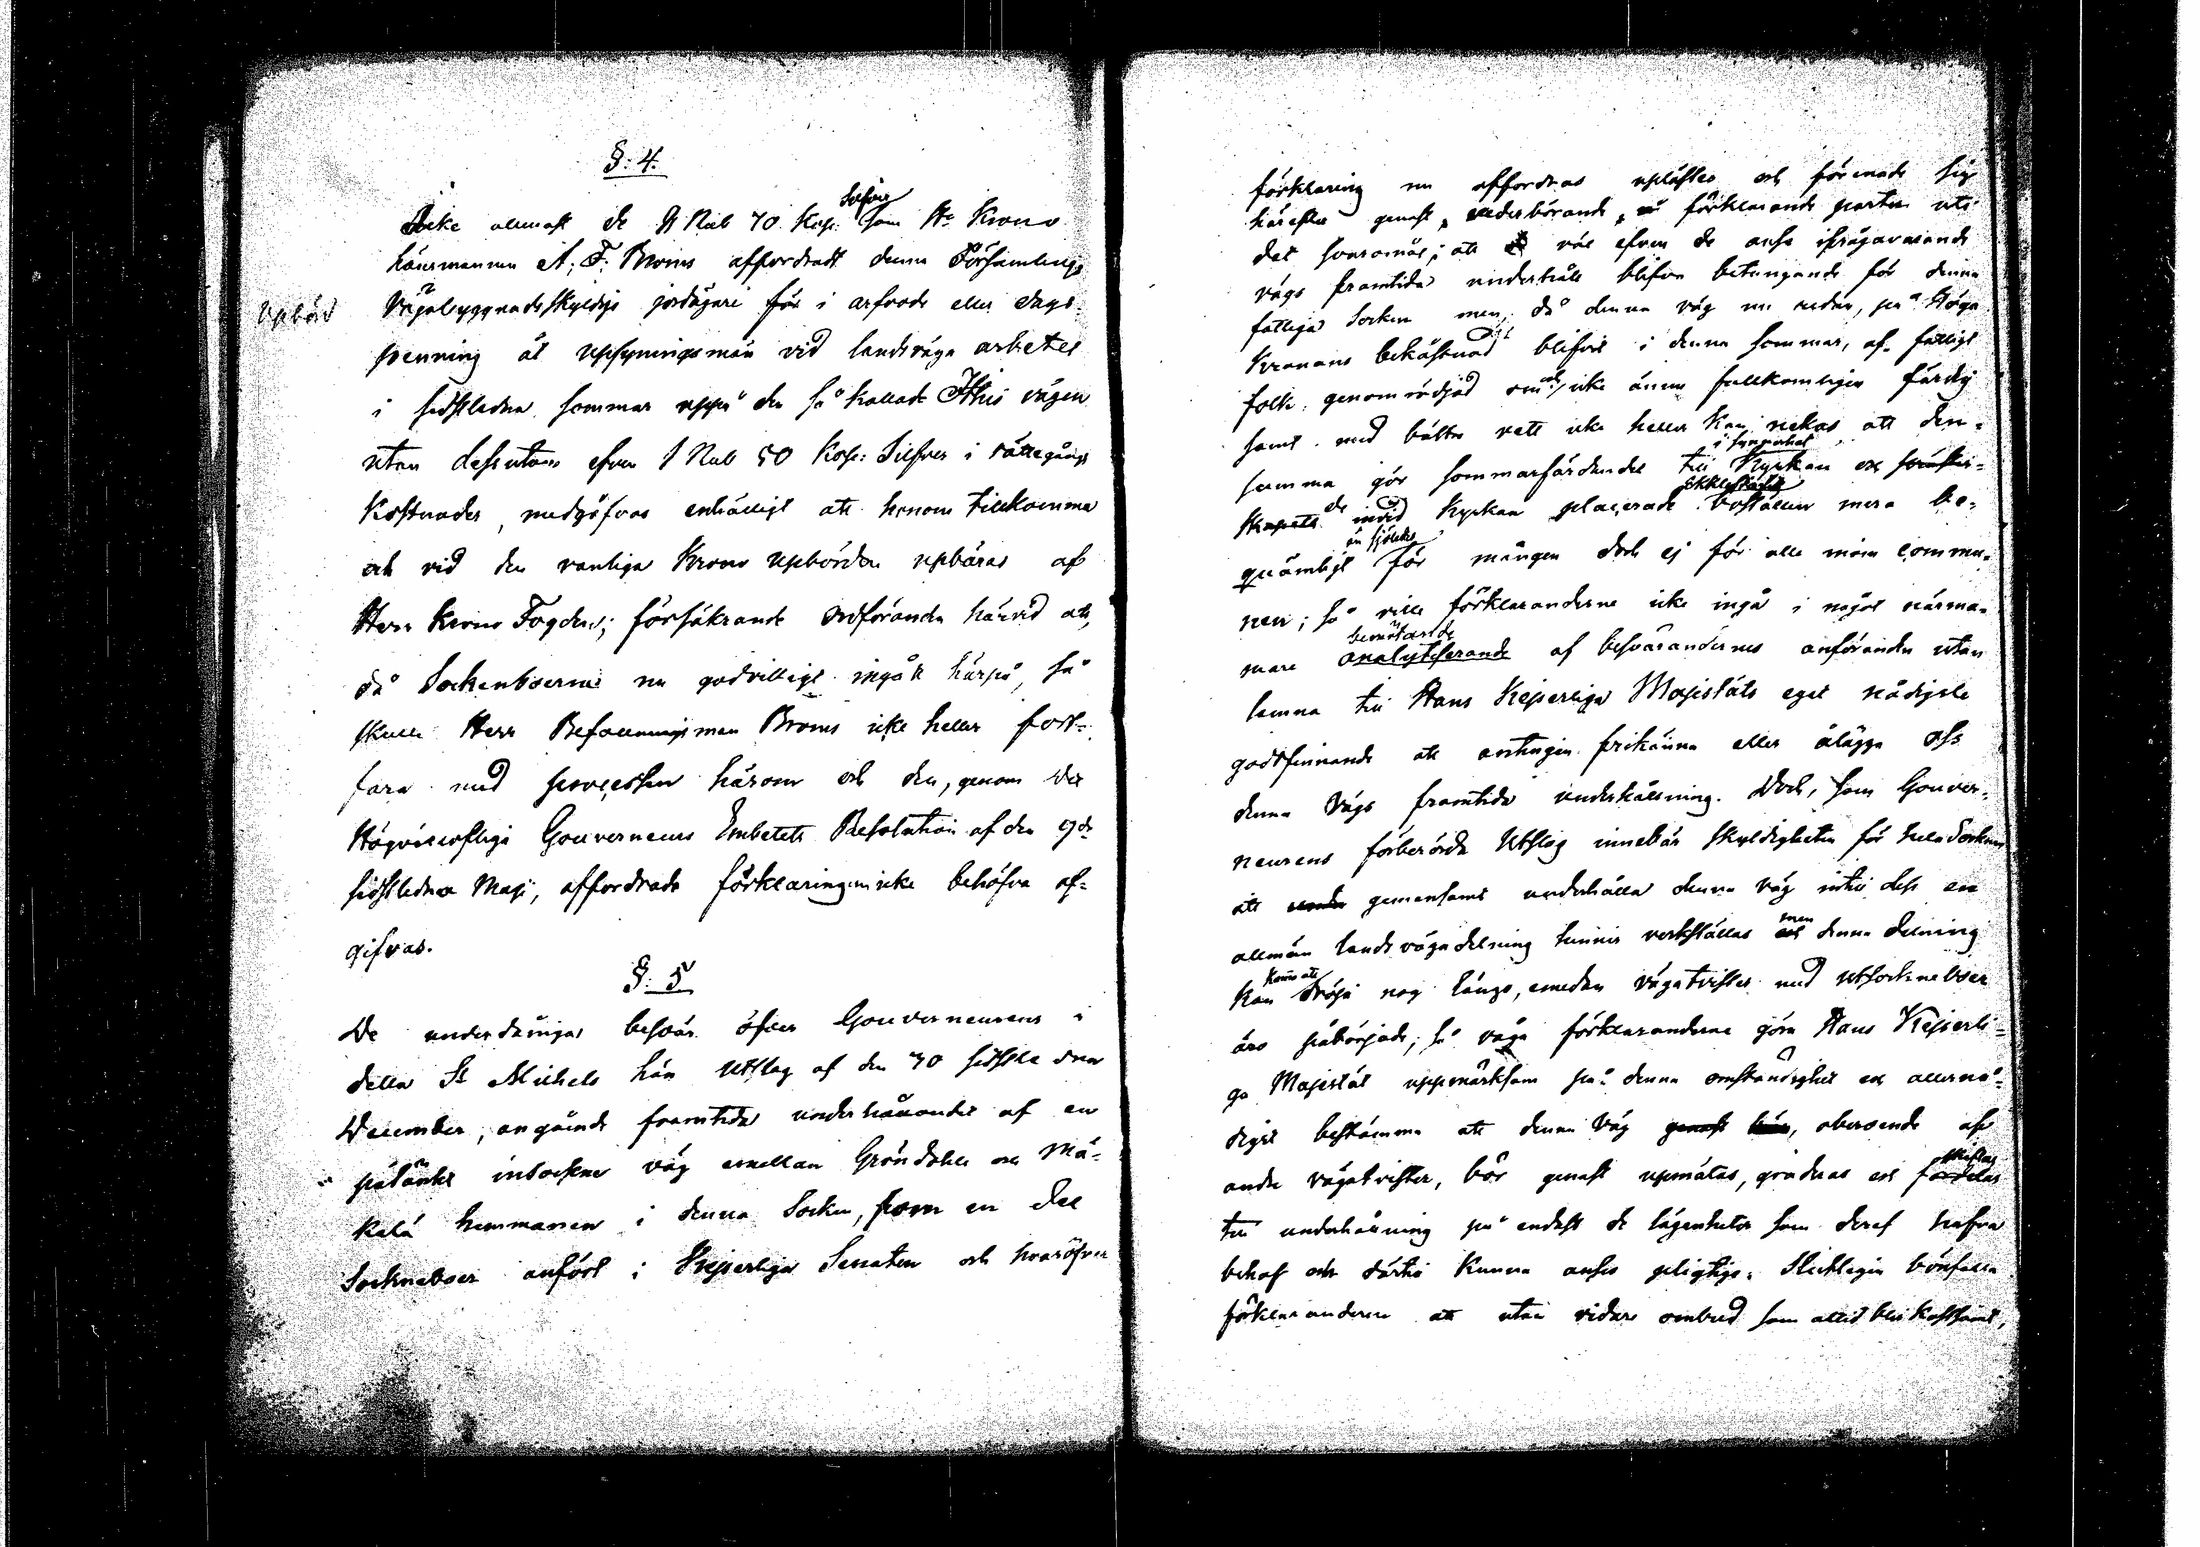 §: 4.
Icke allenast de 9 Rub 70 Kop: Silfver som Hr Krono
länsmannen A: F: Broms affordradt denna Församlings
Upbörd
Vägabyggnadsskyldige jordägare för i arfvode eller dags-
penning åt uppsyningsmän vid landsväga arbetet
i sidstledna sommar uppå den så kallade Ihis vägen
utan dessutom efven 1 Rub 50 Kop: Silfver i rättegångs
Kostnader, medgåfvos enhälligt att honom tillkomma
och vid den vanliga Krono Upbörden upbäras af
Herr Krono Fogden; försäkrande ordföranden härvid att,
då Sockenboerne nu godvilligt ingått härpå, så
skulle Herr Befallningsman Broms icke heller fort-
fara med processen härom och den, genom det
Högvälloflige Gouverneurs Embetets Resolution af den 9de
sidstledna Maji, affordrade förklaringen icke behöfva af-
gifvas.
§: 5
De underdåniga besvär öfver Gouverneurens i
detta St Michels Län Utslag af den 30 sidstledna
December, angående framtida underhållandet af en
påtänkt insockne väg emellan Gröndahls och Mä-
kelä hemmanen i denna Socken, som en del
Sockneboer anfört i Kejserliga Senaten och hvaröfver
förklaring nu affordras uplästes och förenade sig
härefter genast, vederbörande, förklarande parten uti
det svaromål; att väl efven de anse ifrågavarande
vägs framtida underhåll blifva betungande för denna
fattiga Socken men, då denna väg nu redan, på Höga
Kronans bekåstnad blifvit i denna sommar, af fattigt
folk, genombrådjad om och icke ännu fullkomligen färdig
samt med bättre rätt icke heller kan nekas att den-
samma gör sommarfärdandet till Kyrkan i synnerhet och
de invid Kyrkan placerade Ecklesiastik Boställen mera be-
quämligt än sjöledes för mången doch ej för alla inom commu-
nen; så ville förklaranderne icke ingå i något närma-
mare bemötande analytiserande af besvärandernes anföranden utan
lemna till Hans Kejserliga Majestäts eget nådigste
godtfinnande att antingen frikänna eller ålägga oss
denna Vägs framtida underhållning. Doch, som Gouver-
neurens förberörda Utslag innebär skyldigheten för hela Socknen
att gemensamt underhålla denna väg intill dess en
allmän landsvägadelning hinner verkställas men denna delning
kan komma att dröja nog länge, emedan vägatvister med Utsockneboer
äro påbörjade, så våga förklaranderne göra Hans Kejserli-
ga Majestät uppmärksam på denna omständighet och allernå-
digst bestämma att denna Väg genast här, oberoende af
andra vägatvister, bör genast upmätas, graderas och skiftas fördelas
till underhållning på endast de lägenheter som deraf hafva
behof och därtill kunna anses pligtige. Slutligen bönfalla
förklaranderne att utan vidare ombud som alltid blir kostsamt,